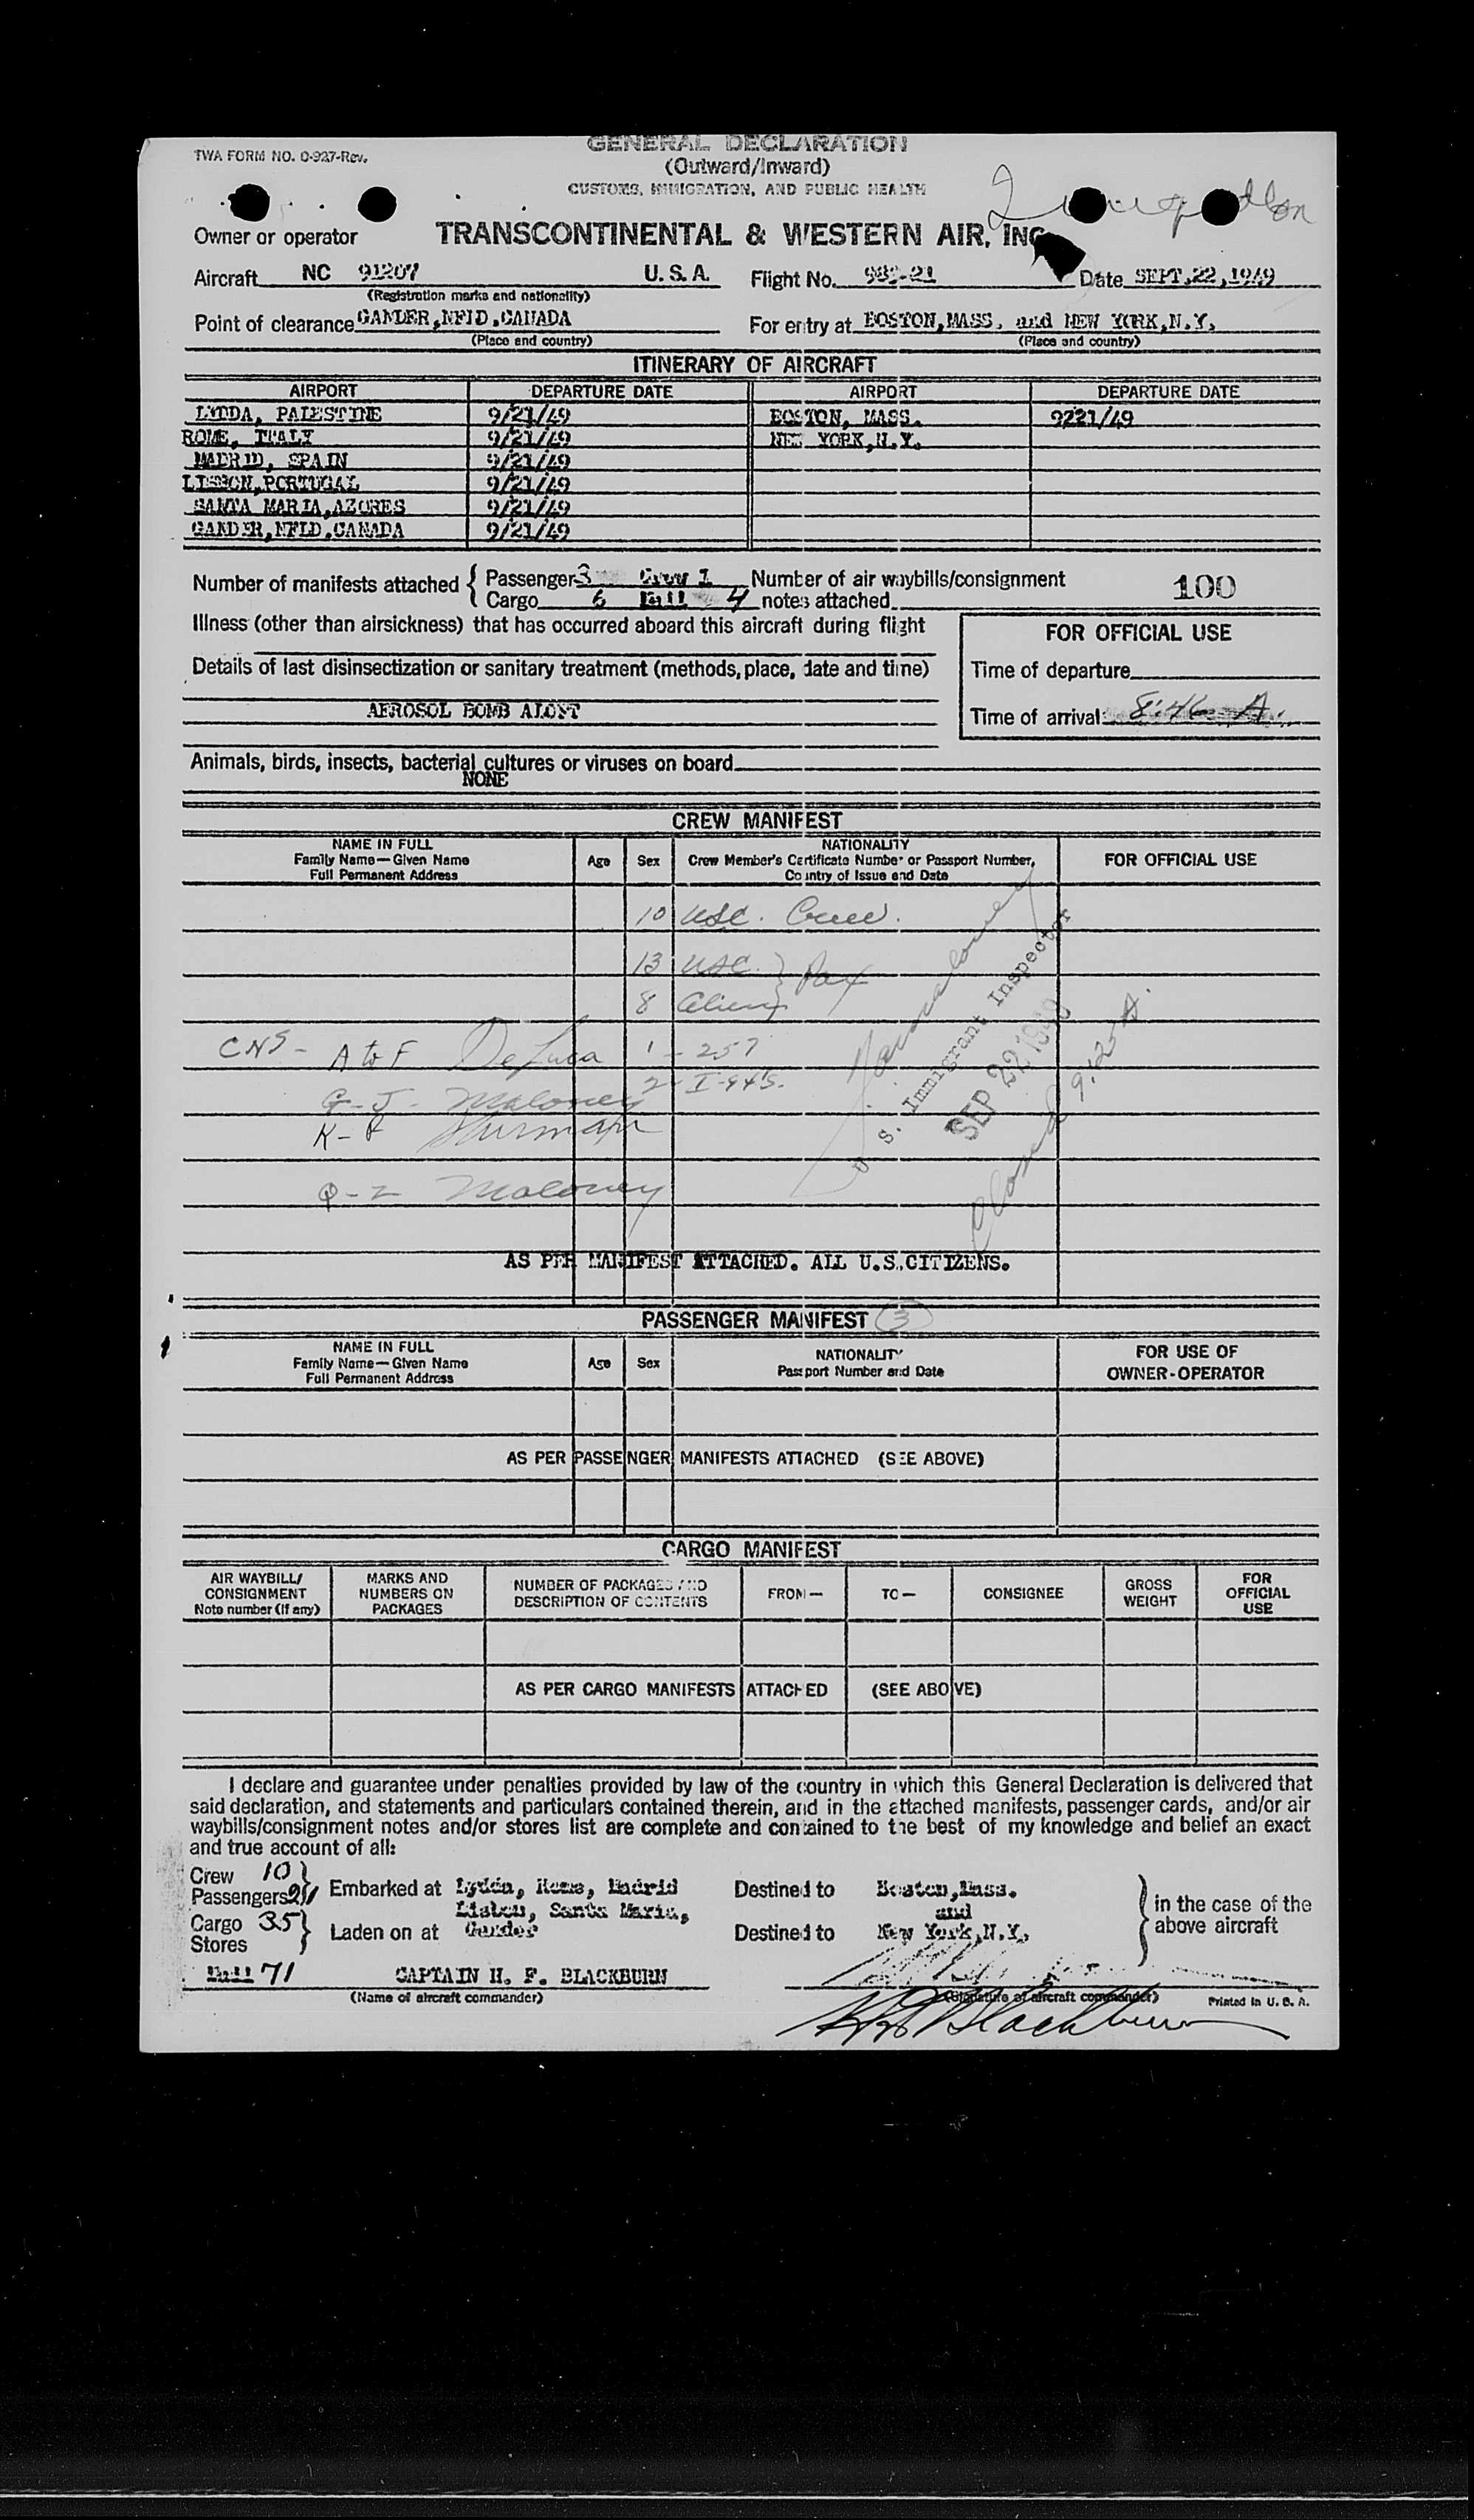 GENERAL DECLARATION
(Outward/Inward)
CUSTOMS, IMMIGRATION, AND PUBLIC HEALTH
TWA FORM NO. O-927-Rev.
Owner or operator TRANSCONTINENTAL & WESTERN AIR, INC.
Aircraft NC 91207 U.S.A. Flight No. -21 Date SEPT.22,1949
(Registration marks and nationality)
Point of clearance GANDER,NFLD.CANADA For entry at BOSTON,MASS. and NEW YORK,N.Y.
(Place and country) (Place and country)
ITINERARY OF AIRCRAFT
AIRPORT DEPARTURE DATE AIRPORT DEPARTURE DATE
LYDDA, PALESTINE 9/21/49 BOSTON, MASS. 9221/49
ROME, ITALY 9/21/49 NEW YORK,N.Y.
MADRID, SPAIN 9/21/49
LISBON,PORTUGAL 9/21/49
SANTA MARIA,AZORES 9/21/49
GANDER,NFLD.CANADA 9/21/49
Number of manifests attached { Passenger 3 Crew 1 Number of air waybills/consignment 100
Cargo 6 Mail 4 notes attached
Illness (other than airsickness) that has occurred aboard this aircraft during flight
FOR OFFICIAL USE
Details of last disinsectization or sanitary treatment (methods, place, date and time)
Time of departure
AEROSOL BOMB ALOFT
Time of arrival 8:46 A.
Animals, birds, insects, bacterial cultures or viruses on board
NONE
CREW MANIFEST
NAME IN FULL
Family Name—Given Name
Full Permanent Address
Age Sex
NATIONALITY
Crew Member's Certificate Number or Passport Number,
Country of Issue and Date
FOR OFFICIAL USE
10 USC. Crew.
13 USC. } Pax
8 Aliens
CNS - A to F DeLuca 1 - 257
G - J - Maloney 2 - I-94's.
K - P Shurman
Q - Z Maloney
U. S. Immigrant Inspector
SEP 22 1949
Closed 9:25 A.
AS PER MANIFEST ATTACHED. ALL U.S.CITIZENS.
PASSENGER MANIFEST 3
NAME IN FULL
Family Name—Given Name
Full Permanent Address
Age Sex
NATIONALITY
Passport Number and Date
FOR USE OF
OWNER-OPERATOR
AS PER PASSENGER MANIFESTS ATTACHED (SEE ABOVE)
CARGO MANIFEST
AIR WAYBILL/
CONSIGNMENT
Note number (if any)
MARKS AND
NUMBERS ON
PACKAGES
NUMBER OF PACKAGES AND
DESCRIPTION OF CONTENTS
FROM— TO— CONSIGNEE
GROSS
WEIGHT
FOR
OFFICIAL
USE
AS PER CARGO MANIFESTS ATTACHED (SEE ABOVE)
I declare and guarantee under penalties provided by law of the country in which this General Declaration is delivered that
said declaration, and statements and particulars contained therein, and in the attached manifests, passenger cards, and/or air
waybills/consignment notes and/or stores list are complete and contained to the best of my knowledge and belief an exact
and true account of all:
Crew 10 }
Passengers 21 Embarked at Lydda, Rome, Madrid Destined to Boston,Mass.
Lisbon, Santa Maria, and in the case of the
Cargo 35 } Laden on at Gander Destined to New York,N.Y. above aircraft
Stores
Mail 71 CAPTAIN H. F. BLACKBURN
(Name of aircraft commander) (Signature of aircraft commander) Printed in U. S. A.
H F Blackburn